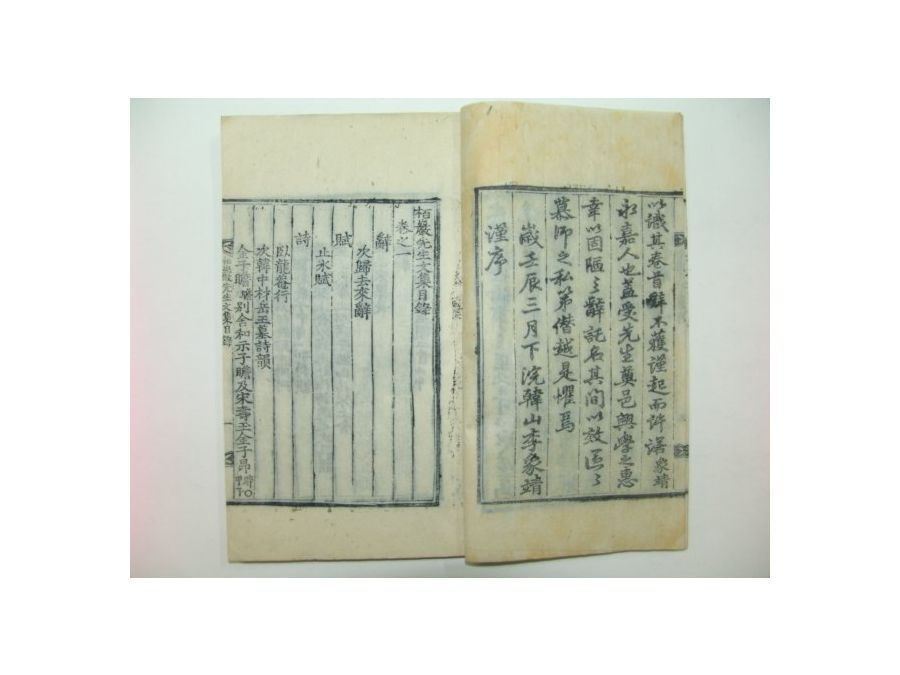 以識其卷首辭不獲謹起而許諾象靖
永嘉人也盖受先生奠邑興學之惠
幸以固陋之辭託名其間以效區々
慕師之私第僭越是懼焉
歲壬辰三月下浣韓山李象靖
謹序
栢巖先生文集目錄
卷之一
辭
次歸去來辭
賦
止水賦
詩
臥龍菴行
次韓中村岳王墓詩韻
金子瞻別舍和示子瞻及宋壽玉金子昂
先生文集目錄